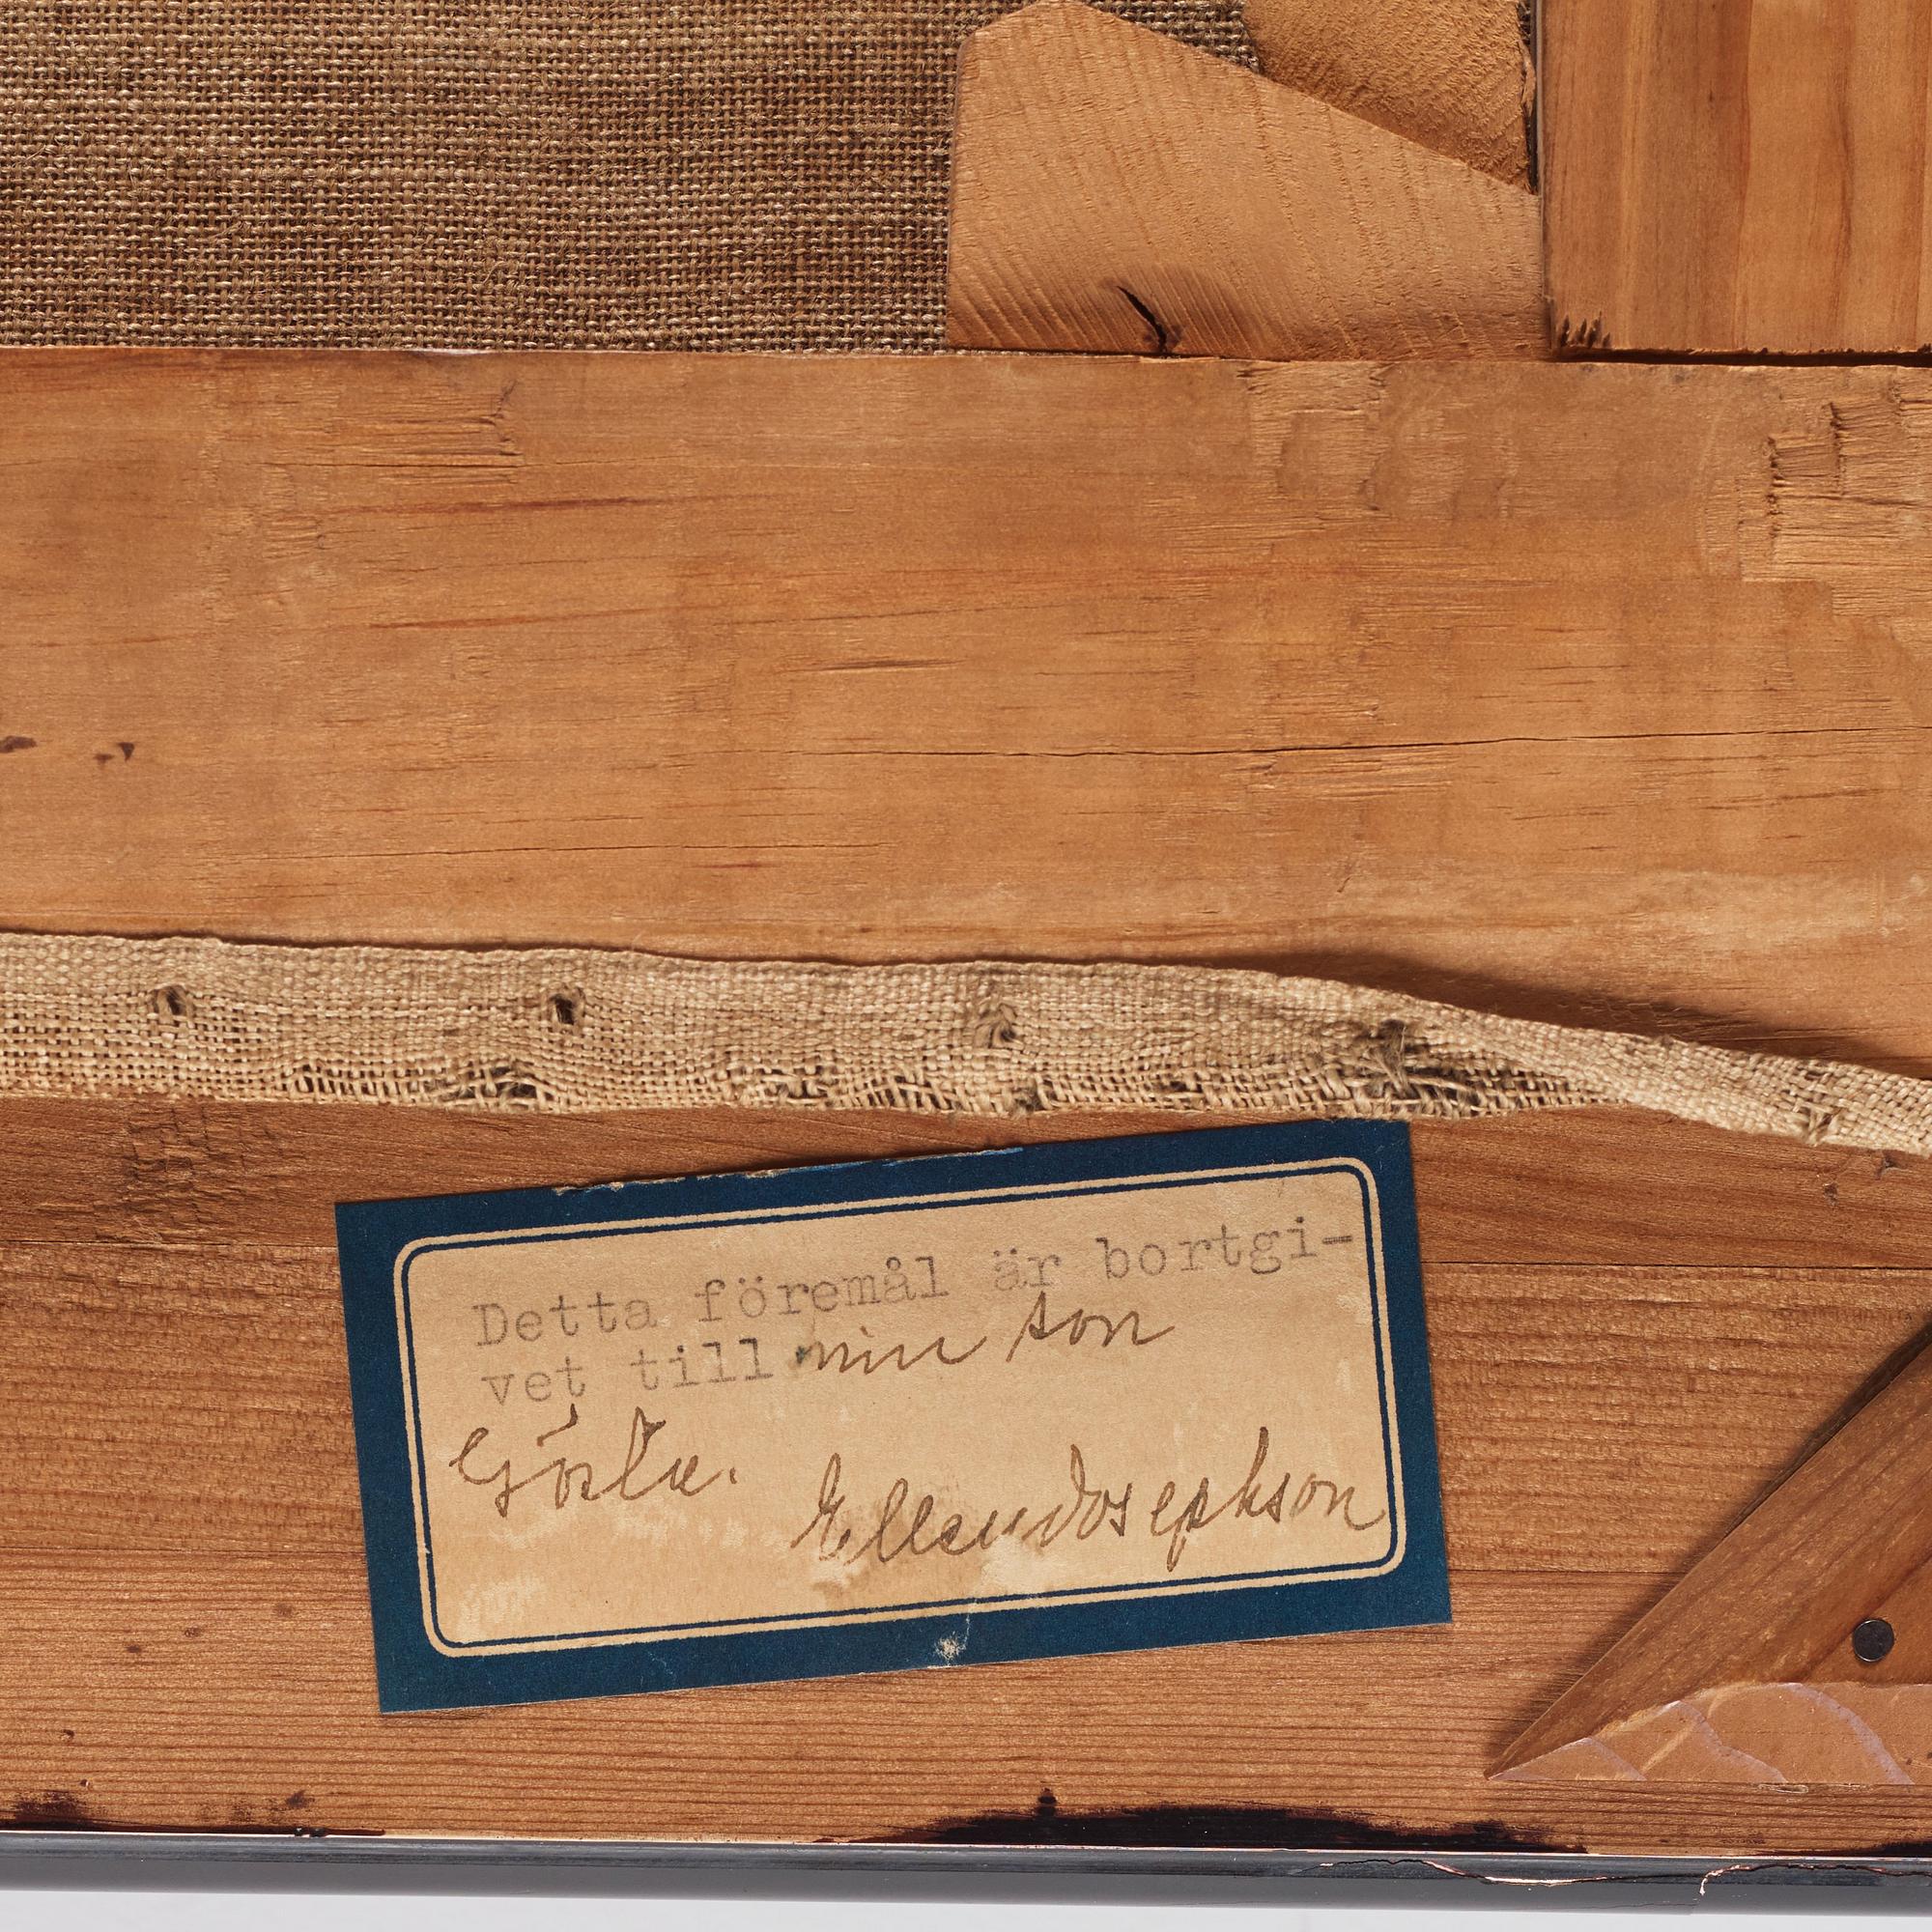 Detta föremål är bortgi-
vet till min son
Gösta.
Ellen Josephson